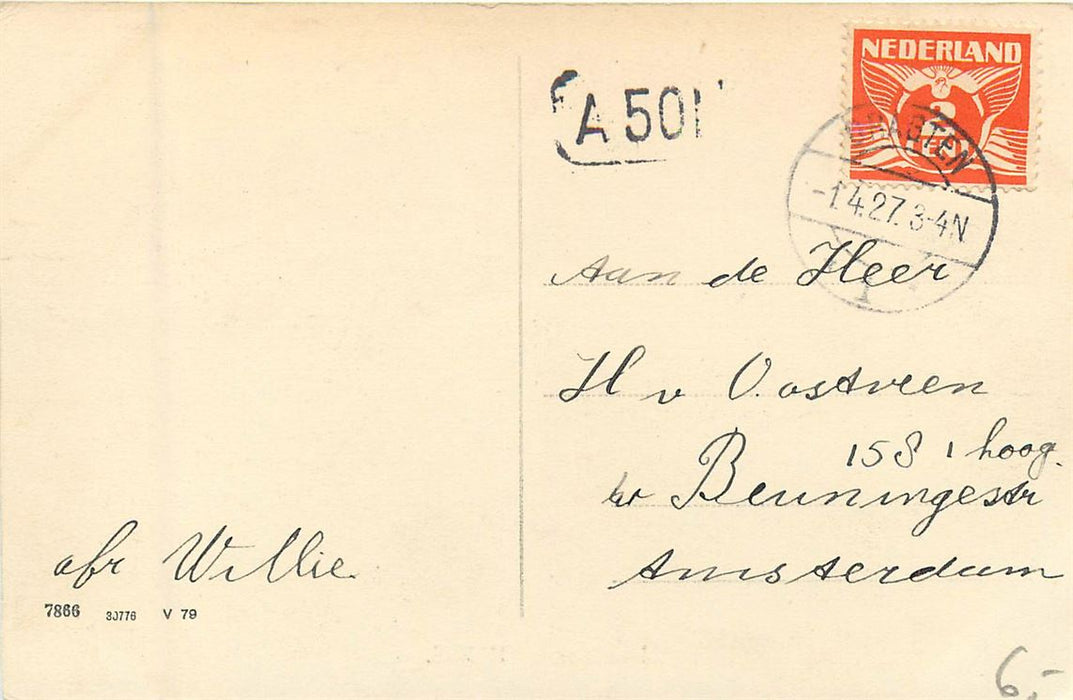 NEDERLAND
2
A 501
-1.4.27. 3-4N
1
Aan de Heer
H v Oostveen
158 1 hoog.
v Beuningestr
Amsterdam
afz Willie
7866 30776 V 79
6,-